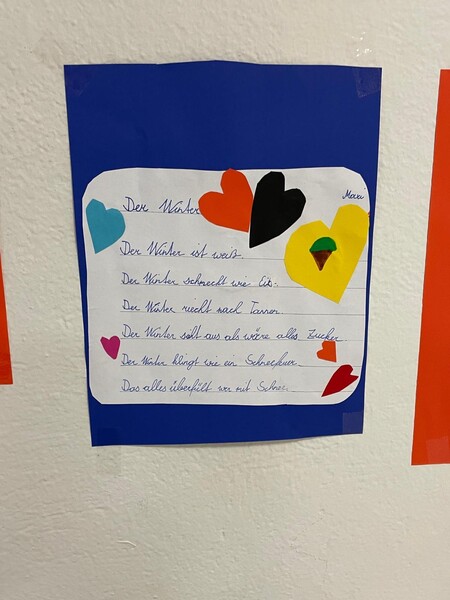 Der Winter
Der Winter ist weiß.
Der Winter schmeckt wie Eis.
Der Winter riecht nach Tannen.
Der Winter sieht aus als wäre alles Zucker
Der Winter klingt wie ein
Das alles überfüllt mit Schnee.